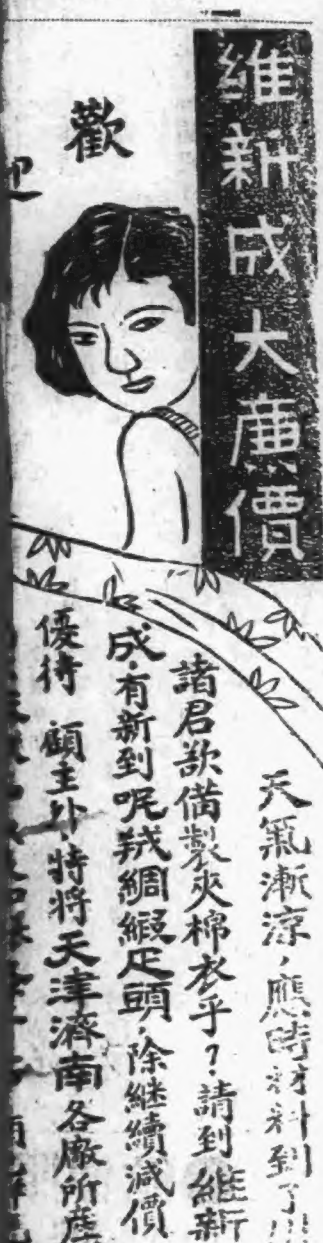 維新成大廉價
歡
迎
天氣漸涼，應時材料到了
諸君欲備製夾棉衣乎？請到維新
成，有新到呢羢綢緞疋頭，除継續減價
優待 顧主外，特將天津濟南各廠所產